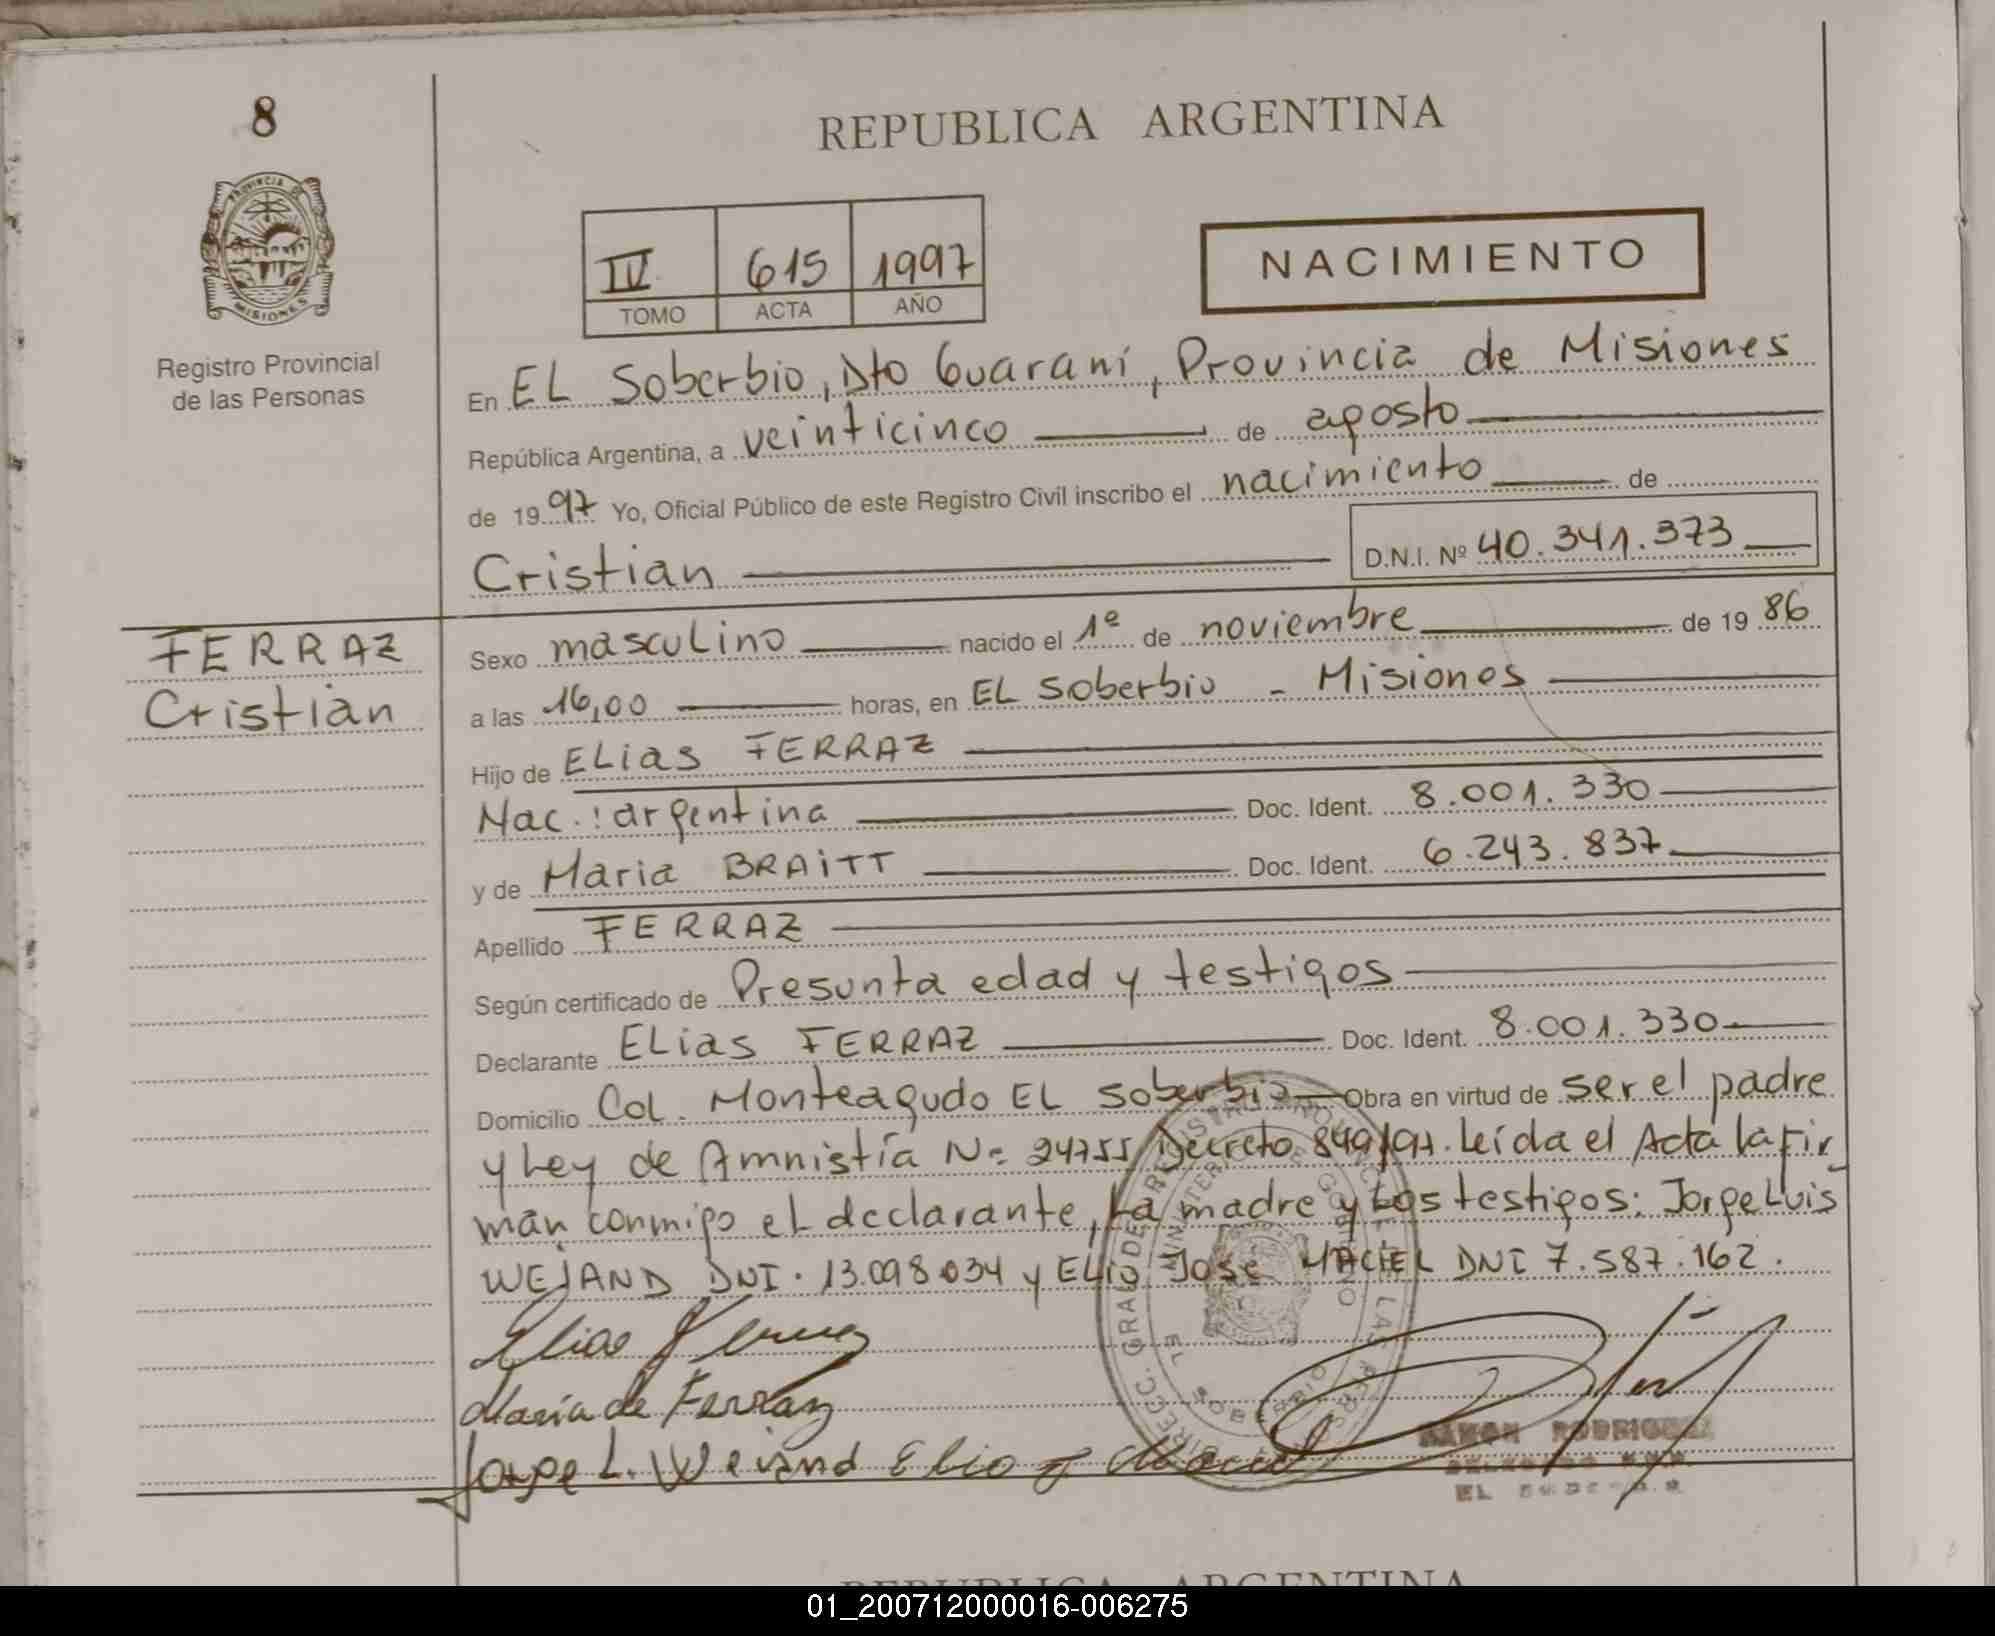 8
REPUBLICA ARGENTINA
PROVINCIA DE
MISIONES
Registro Provincial
de las Personas
IV 615 1997
TOMO ACTA AÑO
NACIMIENTO
En EL Soberbio, Dto Guaraní, Provincia de Misiones
República Argentina, a veinticinco de agosto
de 1997 Yo, Oficial Público de este Registro Civil inscribo el nacimiento de
Cristian D.N.I. Nº 40.341.373
FERRAZ
Cristian
Sexo masculino nacido el 1º de noviembre de 1986
a las 16,00 horas, en EL Soberbio - Misiones
Hijo de ELias FERRAZ
Nac.: argentina Doc. Ident. 8.001.330
y de Maria BRAITT Doc. Ident. 6.243.837
Apellido FERRAZ
Según certificado de Presunta edad y testigos
Declarante ELias FERRAZ Doc. Ident. 8.001.330
Domicilio Col. Monteagudo EL Soberbio Obra en virtud de ser el padre
y Ley de Amnistía Nº 24755 Decreto 849/97. Leída el Acta la fir
man conmigo el declarante, La madre y Los testigos: Jorge Luis
WEIAND DNI. 13.098.034 y ELio José MACIEL DNI 7.587.162.
Elias Ferraz
Maria de Ferraz
Jorge L. Weiand Elio J Maciel
RAMON RODRIGUEZ
EL
REPUBLICA ARGENTINA
01_200712000016-006275